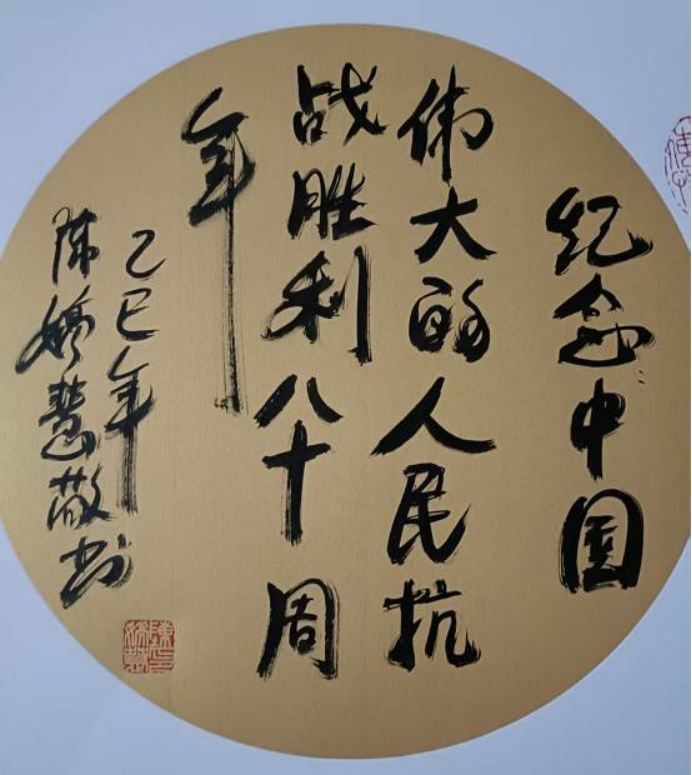 纪念中国
伟大的人民抗
战胜利八十周
年
乙巳年
陈娇慧敬书